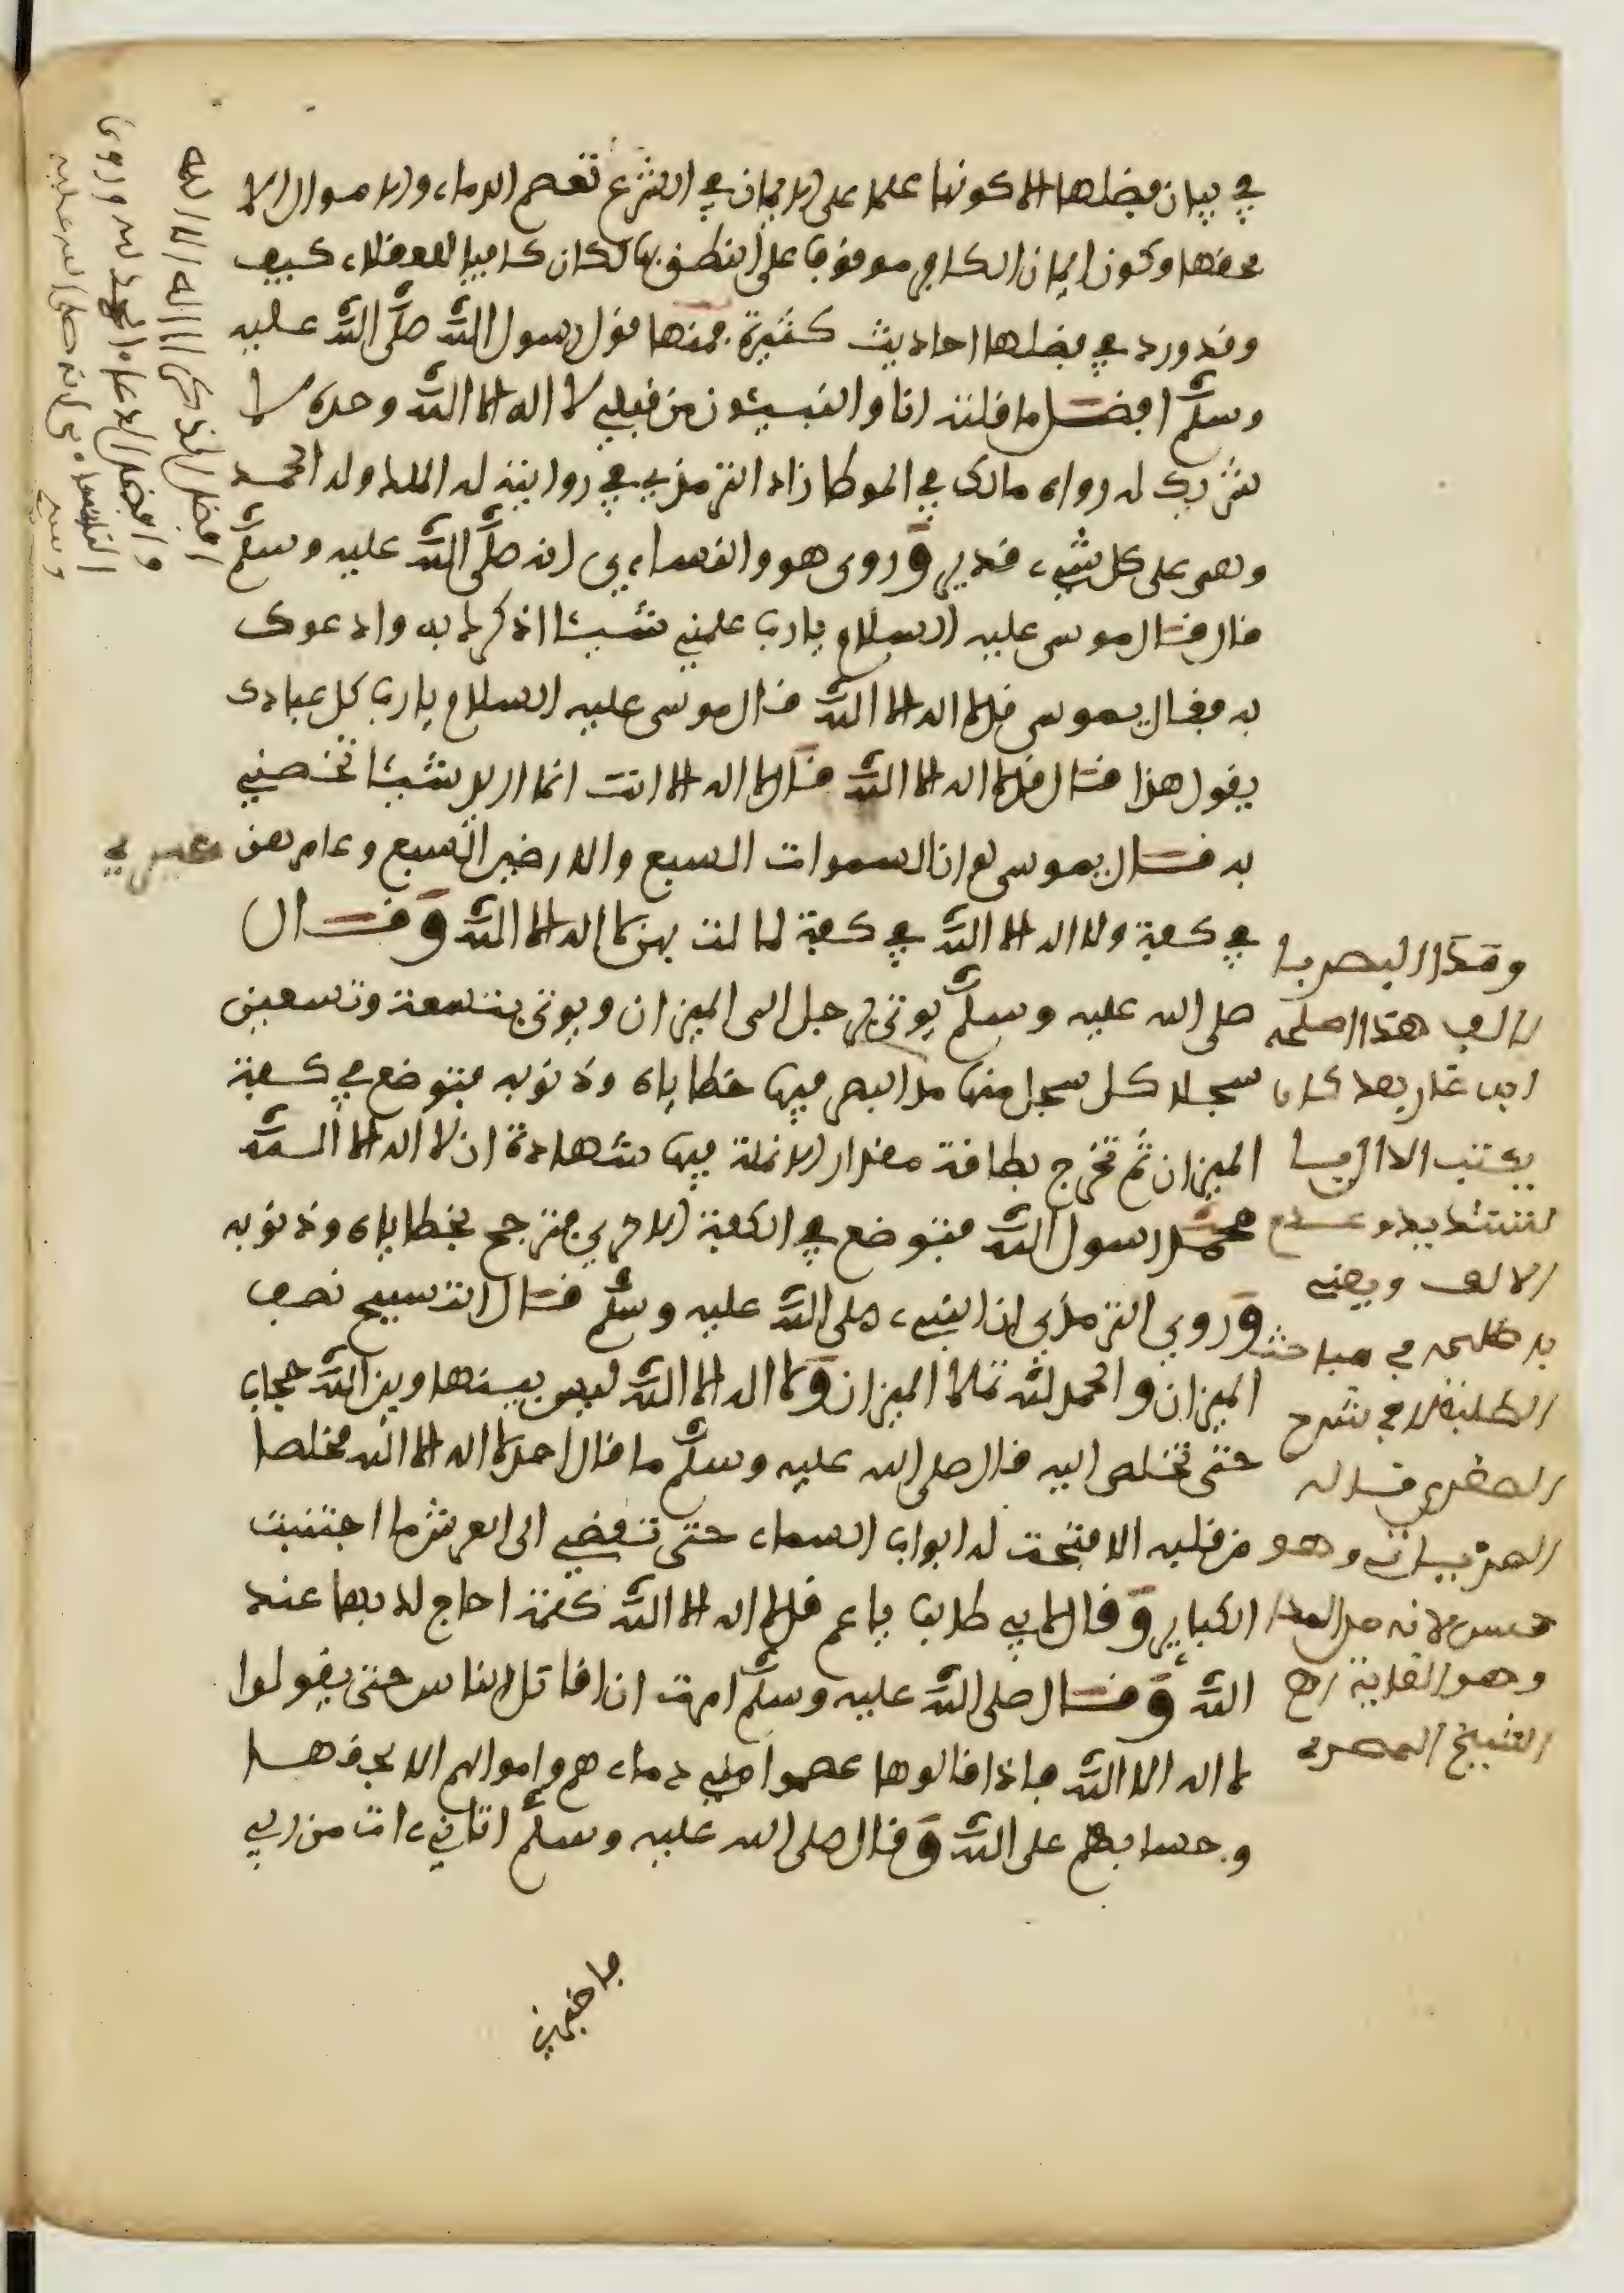 في بيان فضلها الا كونها علما على الايمان في الشرع تعصم الدماء والاموال الا
بحقها وكون ايمان الكافر موقوفا على النطق بها لكان كافيا للعقلاء كيف
وقد ورد في فضلها احاديث كثيرة فمنها قول رسول الله صلى الله عليه
وسلم افضل ما قلته انا والنبيئون من قبلي لا اله الا الله وحده لا
شريك له رواه مالك في الموطا زاد الترمذي في روايته له الملك وله الحمد
وهو على كل شيء قدير وروى هو والنساءي انه صلى الله عليه وسلم
قال قال موسى عليه السلام يا رب علمني شيئا اذكرك به وادعوك
به فقال يموسى قل لا اله الا الله قال موسى عليه السلام يا رب كل عبادك
يقول هذا قال قل لا اله الا الله قال لا اله الا انت انما اريد شيئا تخصني
به قال يموسى لو ان السموات السبع والارضين السبع وعامرهن غيري
في كفة ولا اله الا الله في كفة لمالت بهن لا اله الا الله وقال
صلى الله عليه وسلم يوتى برجل الى الميزان ويوتى بتسعة وتسعين
سجلا كل سجل منها مد البصر فيها خطاياه وذنوبه فتوضع في كفة
الميزان ثم تخرج بطاقة مقدار الانملة فيها شهادة ان لا اله الا الله
محمد رسول الله فتوضع في الكفة الاخرى فترجح بخطاياه وذنوبه
وروى الترمذي ان النبيء صلى الله عليه وسلم قال التسبيح نصف
الميزان والحمد لله تملا الميزان ولا اله الا الله ليس بينها وبين الله حجاب
حتى تخلص اليه قال صلى الله عليه وسلم ما قال احد لا اله الا الله مخلصا
من قلبه الا فتحت له ابواب السماء حتى تفضي الى العرش ما اجتنبت
الكباير وقال لابي طالب يا عم قل لا اله الا الله كلمة احاج لك بها عند
الله وقال صلى الله عليه وسلم امرت ان اقاتل الناس حتى يقولوا
لا اله الا الله فاذا قالوها عصموا مني دماءهم واموالهم الا بحقها
وحسابهم على الله وقال صلى الله عليه وسلم اتاني ءات من ربي
فاخبرني
افضل الذكر لا اله الا الله
وافضل الدعاء الحمد لله وروى
النساءي انه صلى الله عليه
وسلم
ومد البصر
الالف
يكتب الا
الالف ويعني
به في مباحث
في شرح
الصغرى
وهو
حسن لانه مد
وهو الغاية اه
الشيخ المصري